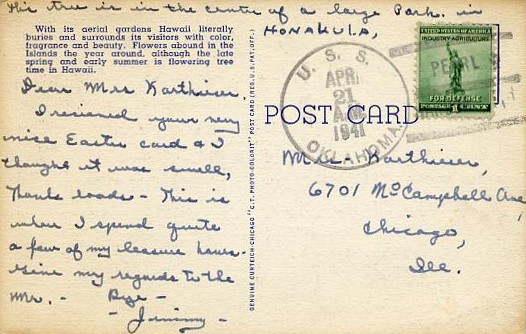 This tree is in the center of a large Park. in
HONALULA,
With its aerial gardens Hawaii literally
buries and surrounds its visitors with color,
fragrance and beauty. Flowers abound in the
Islands the year around, although the late
spring and early summer is flowering tree
time in Hawaii.
Dear Mrs Karthieser
I recieved your very
nice Easter card & I
thought it was swell,
Thanks loads - This is
where I spend quite
a few of my leasure hours.
Give my regards to the
Mr. - Bye -
Jimmy -
GENUINE CURTEICH-CHICAGO "C.T. PHOTO-COLORIT" POST CARD (REG. U.S. PAT. OFF.)
U. S. S.
APR
21
A.M.
1941
OKLAHOMA
POST CARD
UNITED STATES OF AMERICA
INDUSTRY AGRICULTURE
PEARL
FOR DEFENSE
POSTAGE 1 CENT
Mrs L. Karthieser,
6701 McCampbell Ave,
Chicago,
Ill.